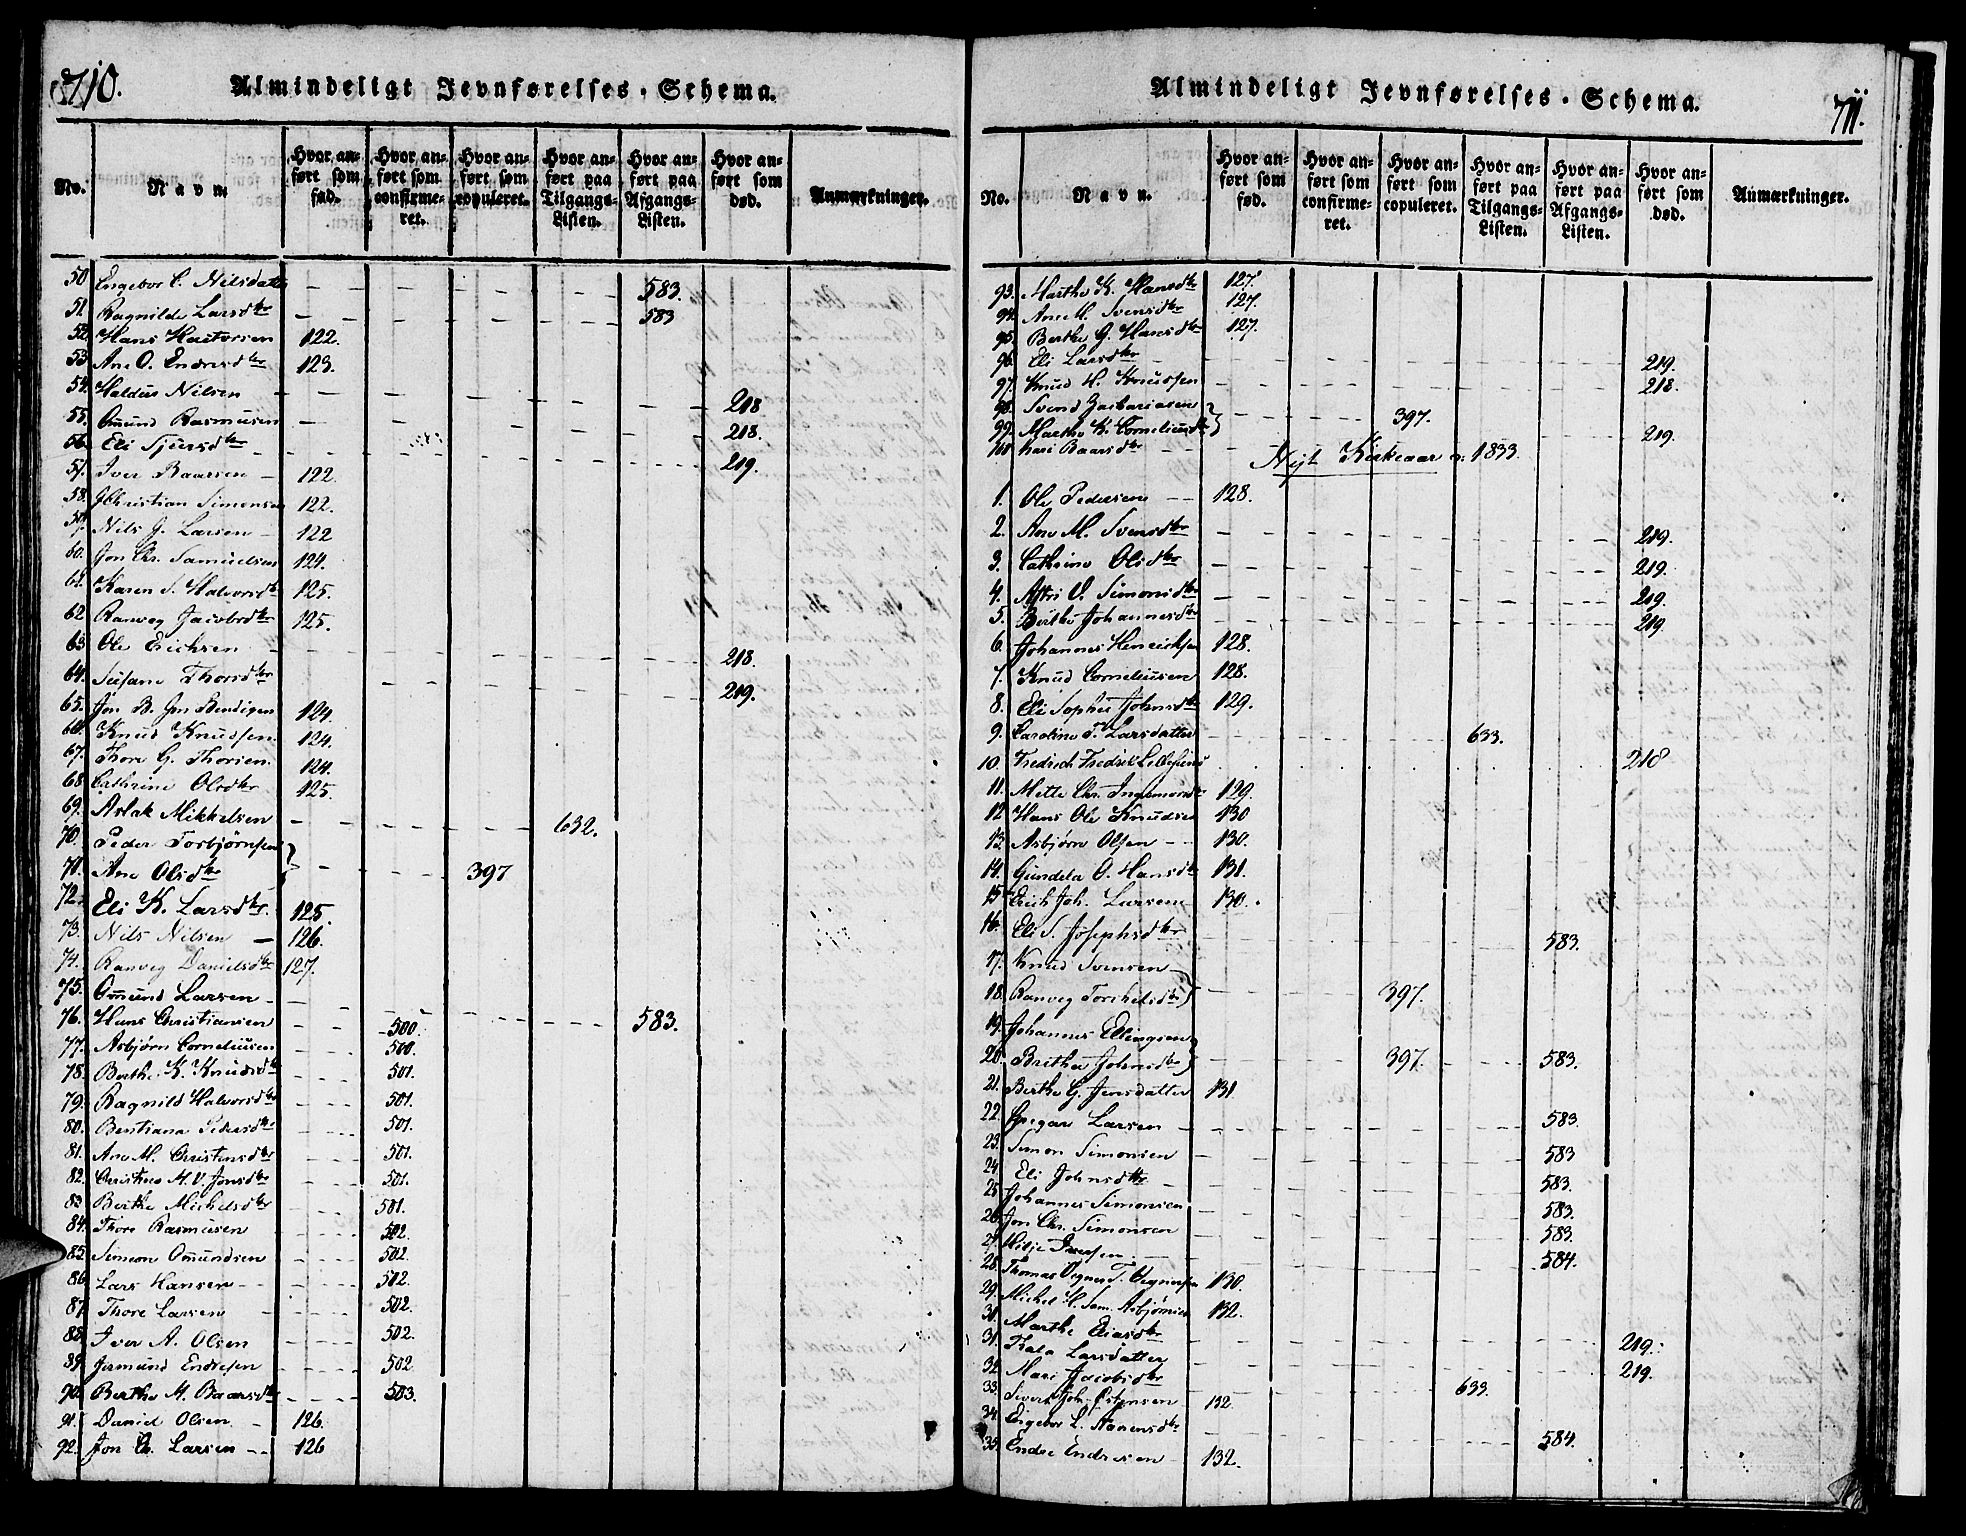 710.
Almindeligt Jevnførelses-Schema.
No. | Navn | Hvor anført som fød. | Hvor anført som confirmeret. | Hvor anført som copuleret. | Hvor anført paa Tilgangs-Listen. | Hvor anført paa Afgangs-Listen. | Hvor anført som død. | Anmærkninger.
50 Engebor C. Nilsdatter 583.
51. Ragnilde Larsdtr 583
52. Hans Hartorsen 122.
53 Ane O. Endresdtr 123.
54. Haldus Nilsen 218
55. Omund Rasmusen 218.
56. Eli Sjursdtr 219.
57. Iver Baarsen 122.
58. Christian Simonsen 122.
59. Nils J. Larsen 122
60. Jon Chr. Samuelsen 124.
61. Karen S. Halvorsdtr 125.
62 Ranveg Jacobsdtr 125.
63 Ole Erichsen 218.
64. Susane Thorsdtr 219.
65. Jon B. Jon Bendigsen 124.
66. Knud Knudsen. 124.
67. Thore G. Thorsen. 124.
68 Cathrine Olsdtr 125.
69. Aslak Mikkelsen 632.
70. Peder Torbjørnsen
71. Ane Olsdtr 397
72. Eli K. Larsdtr. 125.
73. Nils Nilsen 126.
74. Ranveg Danielsdtr 127.
75. Omund Larsen 583.
76. Hans Christiansen 500.
77. Asbjørn Corneliusen 500.
78. Berthe K. Knudsdtr 501.
79. Ragnild Halvorsdtr 501.
80. Bentiana Pedersdtr 501.
81. Ane M. Christensdtr 501.
82. Christine M. V. Jonsdtr 501.
83 Berthe Michelsdtr 501.
84. Thore Rasmusen 502.
85. Simeon Omundsen 502.
86. Lars Hansen 502.
87. Thore Larsen 502.
88. Iver A. Olsen 502.
89. Jermund Endresen 502.
90. Berthe M. Baarsdtr 503.
91. Daniel Olsen 126.
92. Jon Chr. Larsen 126
Almindeligt Jevnførelses-Schema.
711.
No. | Navn. | Hvor anført som fød. | Hvor anført som confirmeret. | Hvor anført som copuleret. | Hvor anført paa Tilgangs-Listen. | Hvor anført paa Afgangs-Listen. | Hvor anført som død. | Anmærkninger.
93. Marthe K. Hansdtr 127.
94. Ane M. Svensdtr 127.
95. Berthe G. Hansdtr 127.
96. Eli Larsdtr 219.
97. Knud H. Knudsen 218.
98. Svend Zachariasen
99. Marthe K. Corneliusdtr 397.
100 Kari Baarsdtr 219.
Nyt Kirkeaar 1833.
1. Ole Pedersen 128.
2. Ane M. Svensdtr 219.
3. Cathrine Olsdtr 219.
4. Astri O. Simonsdtr 219.
5. Berthe Johannesdtr 219
6. Johannes Henrichsen 128.
7. Knud Corneliusen 128.
8. Eli Sophie Johnsdtr 129.
9. Caroline T. Larsdatter 633.
10. Fredrich Fredrik 218
11. Mette Chr. Ingemorsdtr 129.
12 Hans Ole Knudsen 130
13. Asbjørn Olsen 130.
14. Gundela O. Hansdtr 131.
15 Erich Joh. Larsen 130.
16. Eli S. Josephsdtr 583.
17. Knud Svensen
18. Ranveg Torchelsdtr 397.
19. Johannes Ellingsen
20. Brithe Johnsdtr 397. 583.
21. Berthe G. Jensdatter 131
22. Larsen 583.
23. Simon Simonsen 583
24. Eli Johnsdtr 583.
25 Johannes Simonsen 583.
26. Jon Chr. Simonsen 583.
27. Iversen 584.
28. Thomas 130.
29. Michel H. Sam. Asbjørnsen 132.
30. Marthe Eliasdtr 219.
31. Larsdatter 219.
32. Mari Jacobsdtr 633.
33. Sivert Joh. Østensen 132.
34. Engebor L. Hanensdtr 584.
35. Endre Endresen 132.